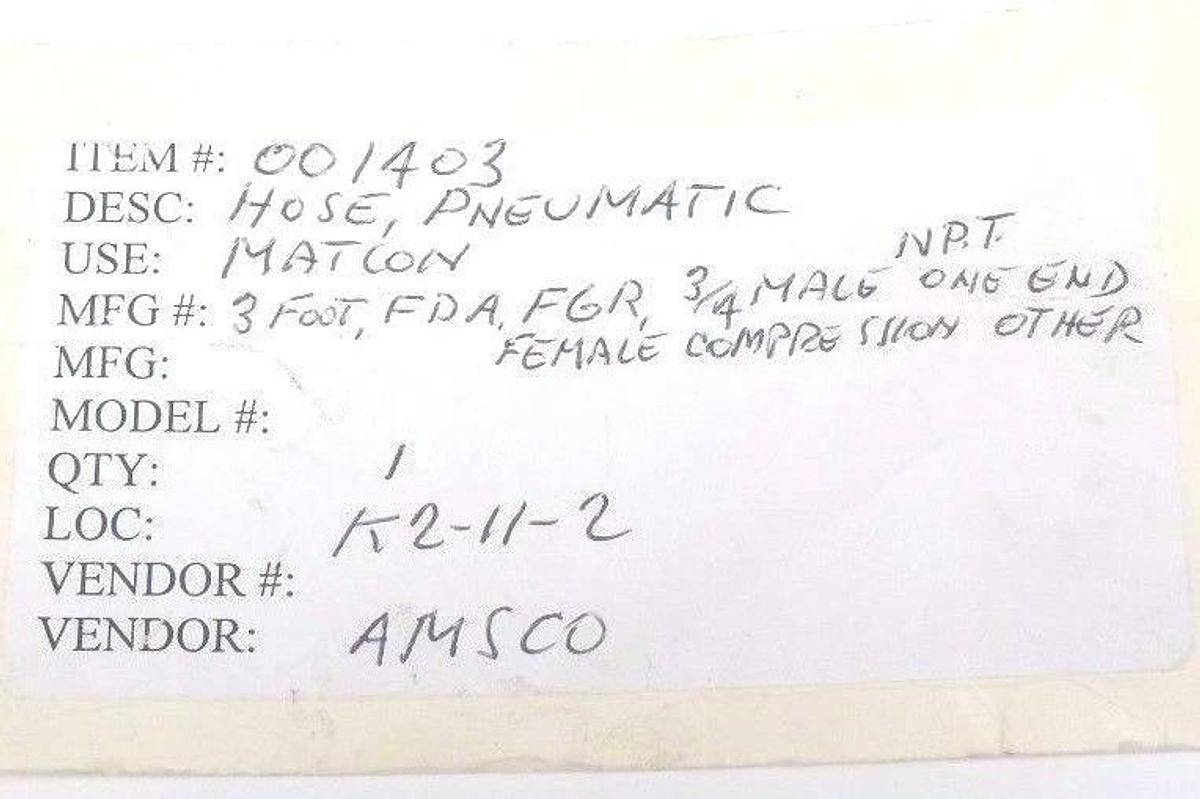 ITEM #: 001403
DESC: HOSE, PNEUMATIC
USE: MATCON
N.P.T.
MFG #: 3 FOOT, FDA, FGR, 3/4 MALE ONE END
FEMALE COMPRESSION OTHER
MFG:
MODEL #:
QTY: 1
LOC: K2-11-2
VENDOR #:
VENDOR: AMSCO